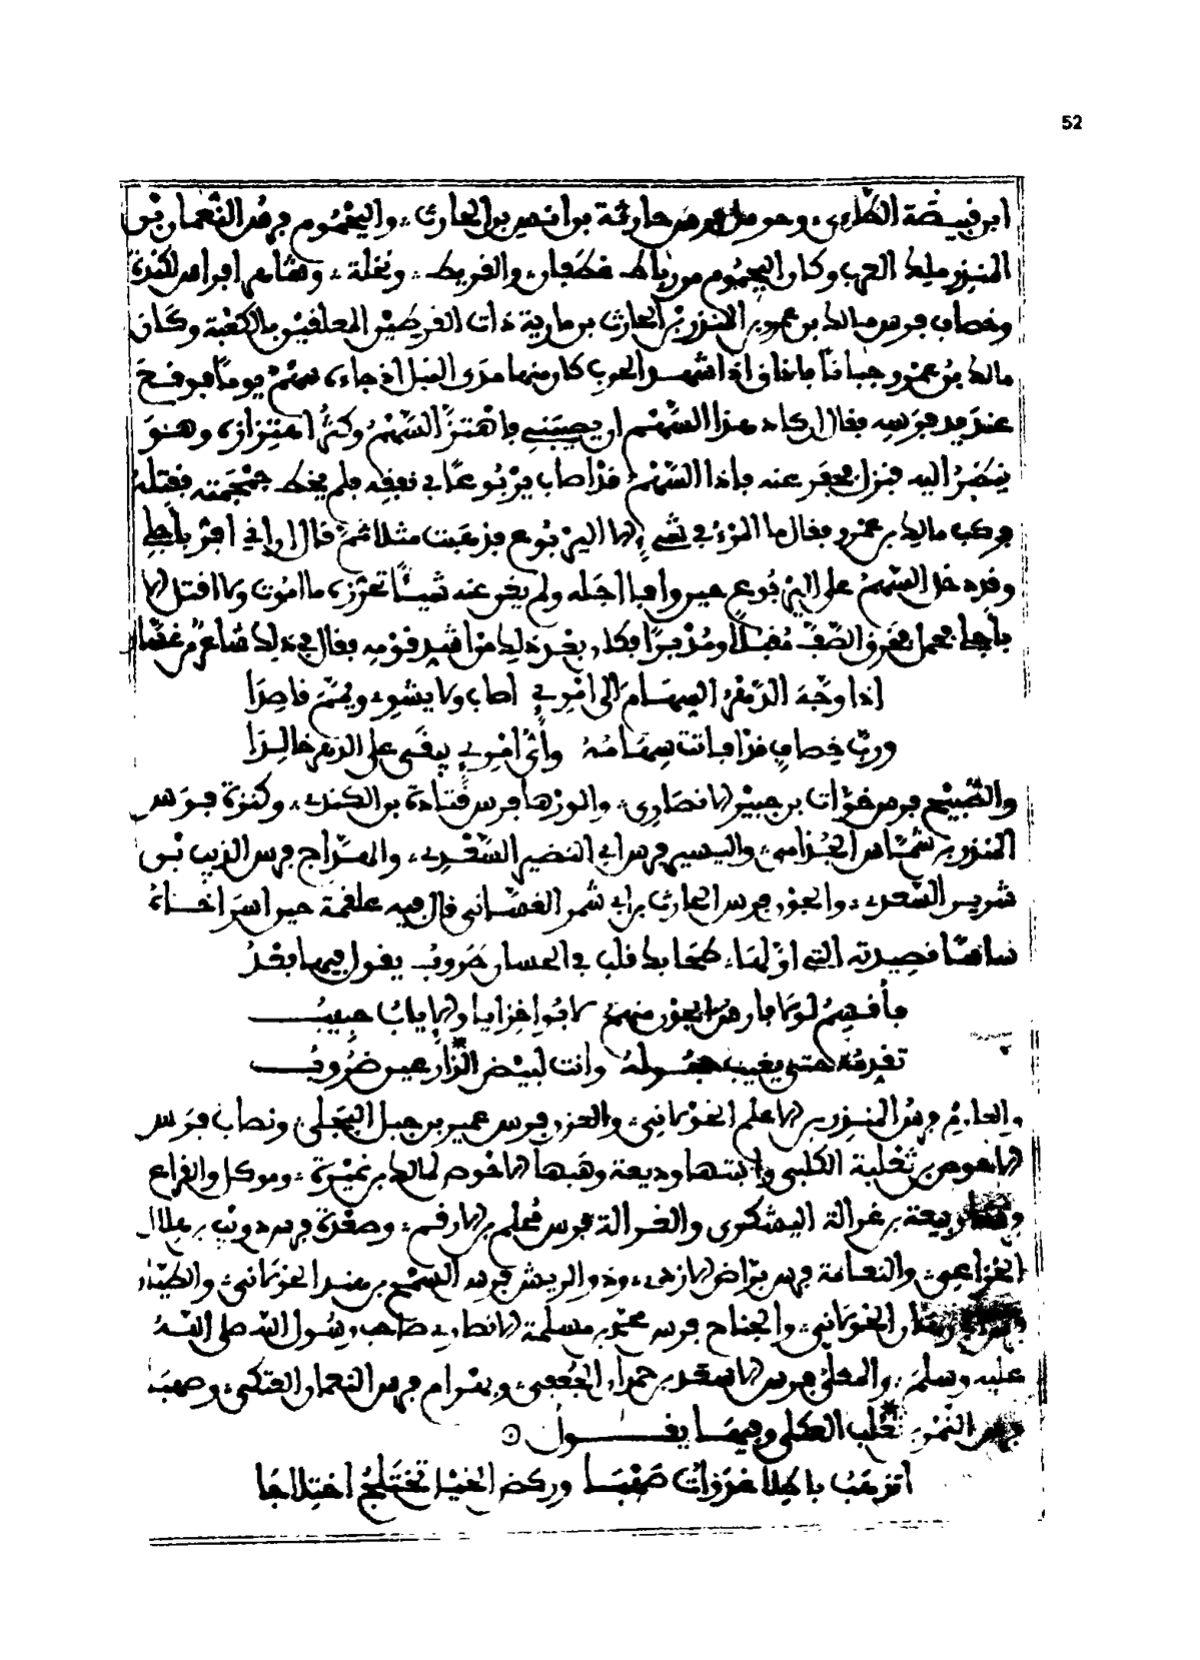 52
ابن قبيصة الطاءي وهو من حارثة بن انس بن الحارث واليحموم فرس النعمان بن
المنذر ملك العرب وكان اليحموم من رباط غضبان والقريط ونغلة وهما من افراس لكندة
وخصاف فرس مالك بن عمرو بن المنذر بن الحارث بن مارية ذات القرطين المعلقين بالكعبة وكان
مالك بن عمرو جبانا اذا شهد الحرب كان منها مدى النبل اذ جاءه سهم يوما فوقع
عند يد فرسه فقال ان كاد هذا السهم ان يصيبني فاهتز السهم وكثر اهتزازه وهو
ينظر اليه فنزل يحفر عنه فاذا السهم قد اصاب يربوعا في نفقه فلم يخط جمجمته فقتله
فركب مالك بن عمرو فقال ما المرء في شيء ولا اليربوع فذهبت مثلا ثم قال اراني افر باجلي
وقد دخل السهم على اليربوع حين وافا اجله ولم يغن عنه شيئا تحرزه ما اموت ولا اقتل الا
باجل فحمل الصف مقبلا ومدبرا فكان بعد ذلك من اشد قومه فقال في ذلك شاعر من غسان
اذا وجه الدهر السهام الى امرئ اصاب ولا يشوي ويمم قاصدا
ورب خصاف فاتت سهامه وأي امرئ يبقى على الدهر خالدا
والصبيح فرس خوات بن جبير الانصاري والورهاء فرس قتادة بن الكندي وكنزة فرس
المنذر بن شماس الجذامي واليسير فرس ابي النضير السعدي والهداج فرس الريب بن
شريس السعدي والجون فرس الحارث بن ابي شمر الغساني قال فيه علقمة حين اسر اخاه
شاسا قصيدته التي اولها طحا بك قلب في الحسان طروب يقول فيها بعد
فأقسم لولا فارس الجون منهم لآبوا خزايا والاياب حبيب
تقدمه حتى يغيب حجوله وانت لبيض الدارعين ضروب
فرس المنذر بن الاعلم الخولاني والعزز فرس عمير بن جبل البجلي ونصاب فرس
الاحوص بن ثعلبة الكلبي وابنتها وديعة وهبها الاحوص لمالك بن نميرة وموكل وانفراع
ربيعة بن غزالة اليشكري والغزالة فرس محلم بن الارقم وصعدة فرس ذويب بن هلال
الخزاعي والنعامة فرس براض الازدي وذو الريش فرس السمح بن هند الخولاني والطيار
الخولاني والجناح فرس محمد بن مسلمة الانصاري صاحب رسول الله صلى الله
عليه وسلم والمعلى فرس الاسعر بن حمران الجعفي وبهرام فرس النعمان العتكي وصهبى
فرس النمر بن تولب العكلي وفيها يقول
اتذهب باطلا غزوات صهبى وركض الخيل تختلج اختلاجا